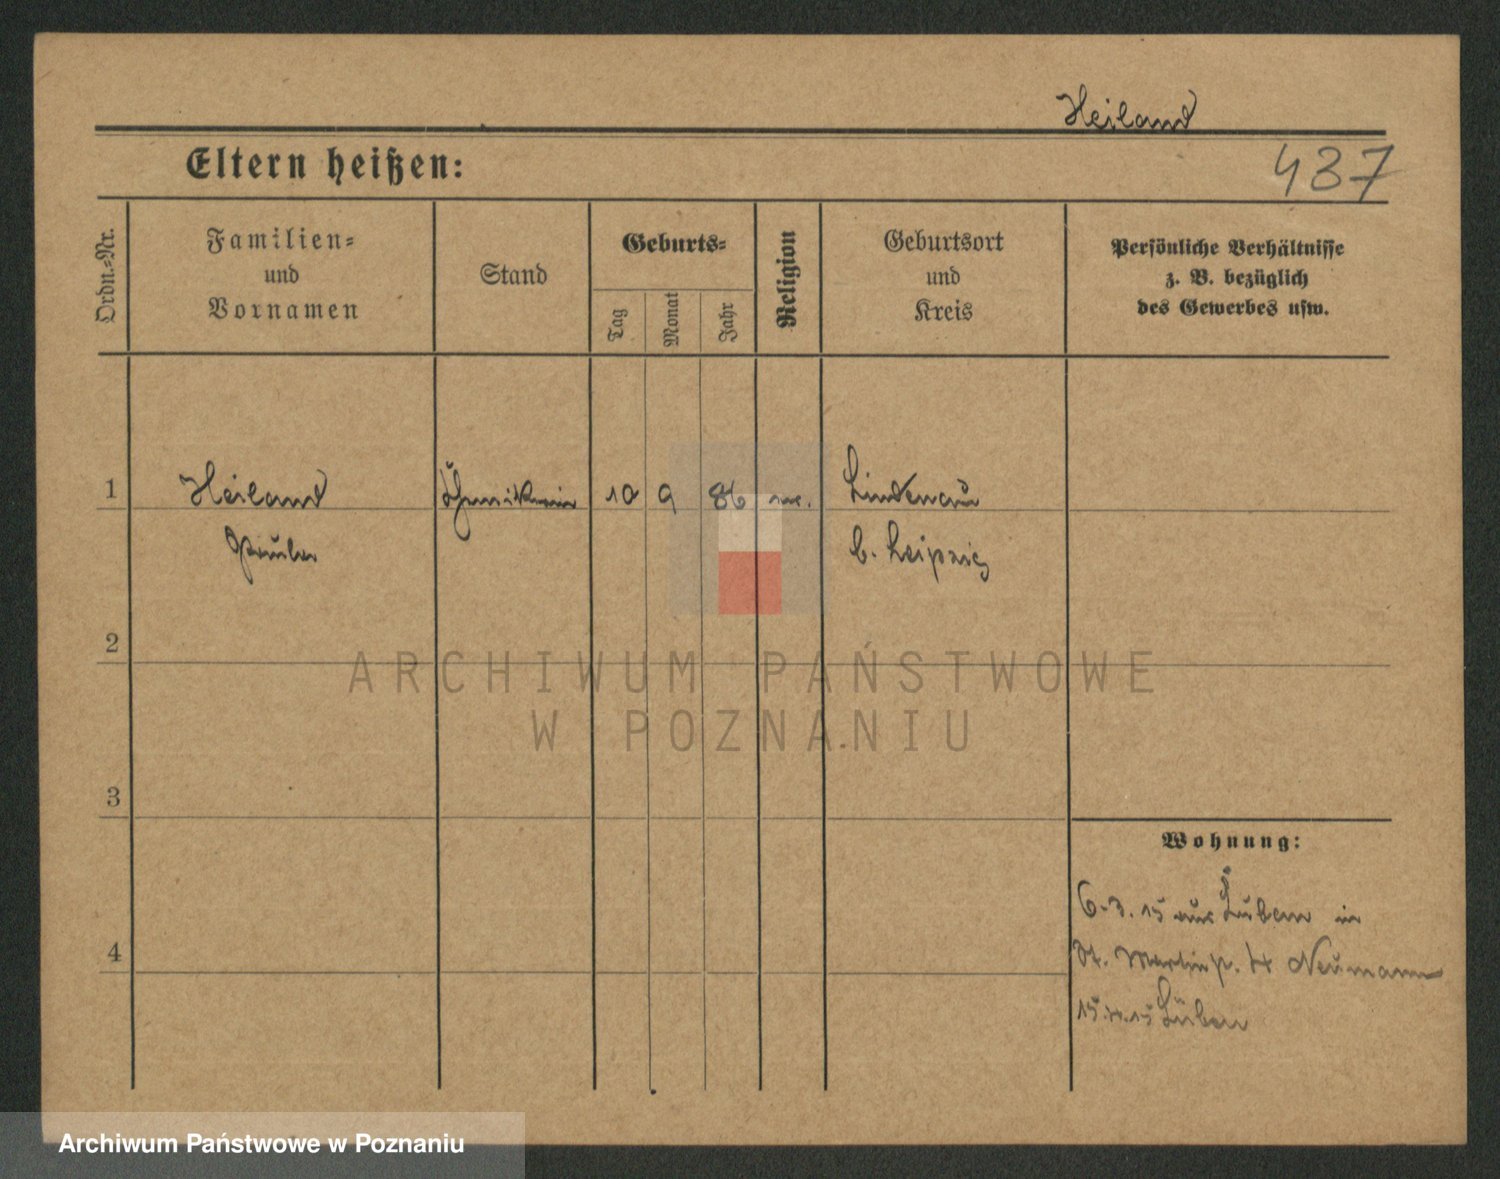 Heiland
Eltern heißen:
437
Ordn.=Nr.
Familien=
und
Vornamen
Stand
Geburts=
Tag
Monat
Jahr
Religion
Geburtsort
und
Kreis
Persönliche Verhältnisse
z. B. bezüglich
des Gewerbes usw.
1
Heiland
10
9
86
Lindenau
b. Leipzig
2
ARCHIWUM PAŃSTWOWE
W POZNANIU
3
Wohnung:
6.3.15 aus Lüben in
St. Martinstr. 4 Neumann
15.4.15 Lüben
4
Archiwum Państwowe w Poznaniu